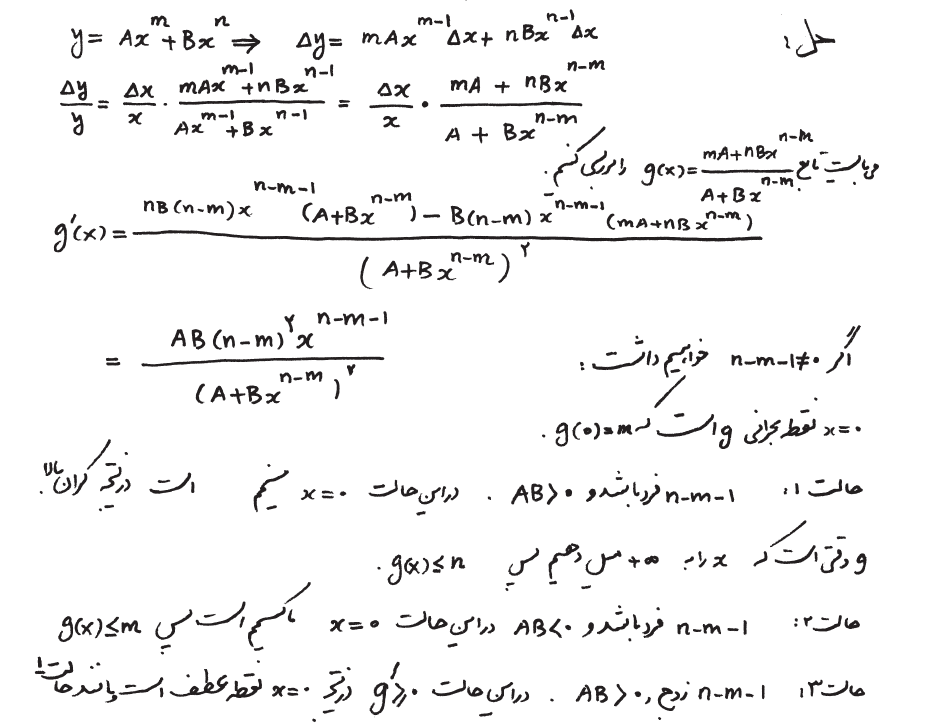 حل: y = Ax^m + Bx^n ⇒ Δy = mAx^{m-1} Δx + nBx^{n-1} Δx
Δy/y = Δx/x · (mAx^{m-1} + nBx^{n-1})/(Ax^{m-1} + Bx^{n-1}) = Δx/x · (mA + nBx^{n-m})/(A + Bx^{n-m})
می‌بایست تابع g(x) = (mA+nBx^{n-m})/(A+Bx^{n-m}) را بررسی کنیم.
g'(x) = (nB(n-m)x^{n-m-1} (A+Bx^{n-m}) - B(n-m)x^{n-m-1} (mA+nBx^{n-m}))/(A+Bx^{n-m})^۲
= (AB(n-m)^۲ x^{n-m-1})/(A+Bx^{n-m})^۲ اگر n-m-1≠۰ خواهیم داشت:
x=۰ نقطه بحرانی g است که g(۰)=m.
حالت ۱: n-m-1 فرد باشد و AB>۰. در این حالت x=۰ مینیمم است در نتیجه کران بالا
g وقتی است که x را به +∞ میل دهیم پس g(x)≤n.
حالت ۲: n-m-1 فرد باشد و AB<۰ در این حالت x=۰ ماکسیمم است پس g(x)≤m
حالت ۳: n-m-1 زوج و AB>۰. در این حالت g'≥۰ در نتیجه x=۰ نقطه عطف است و مانند حالت ۱